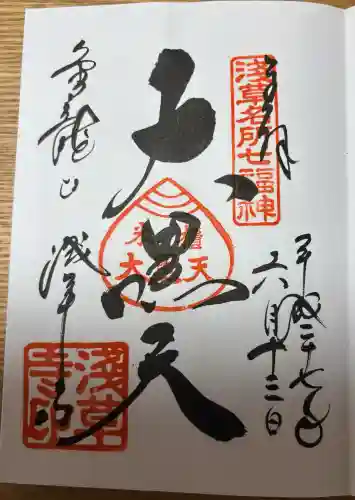 奉拝
浅草名所七福神
平成二十七年
六月十三日
大黒天
米櫃
大黒天
金龍山
浅草寺
浅草
寺印